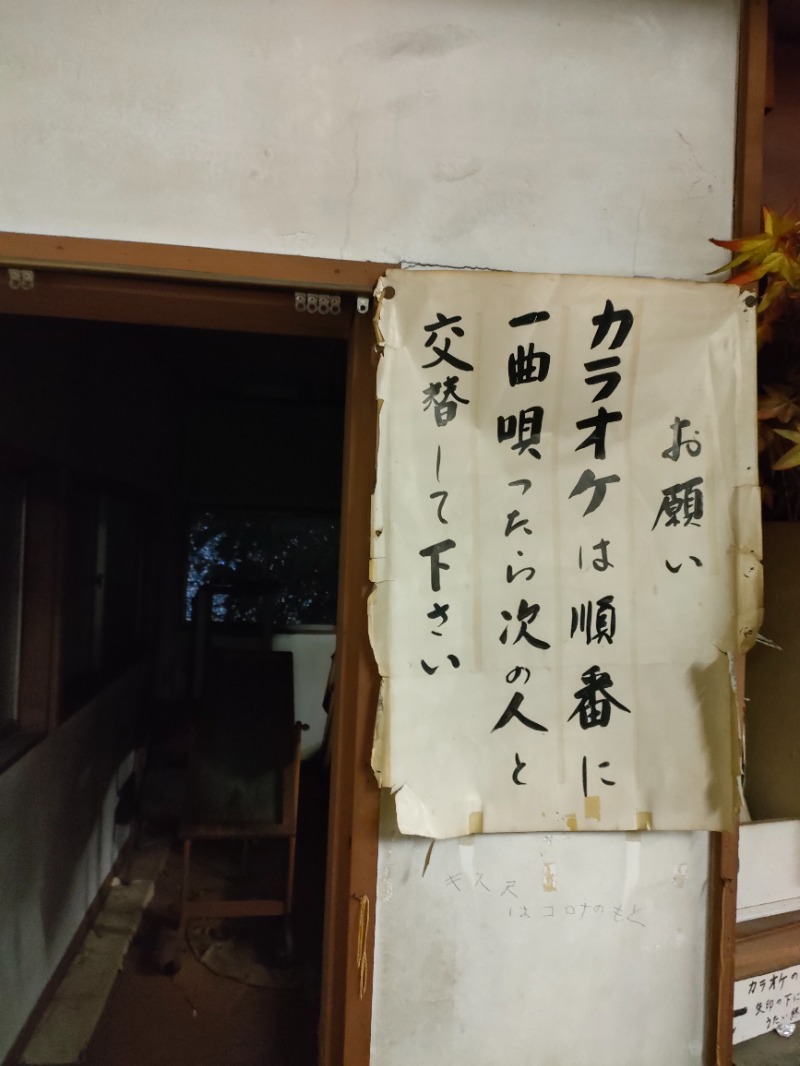 お願い
カラオケは順番に
一曲唄ったら次の人と
交替して下さい
キス尺
はコロナのもと
カラオケの
矢印の下に
うたい終